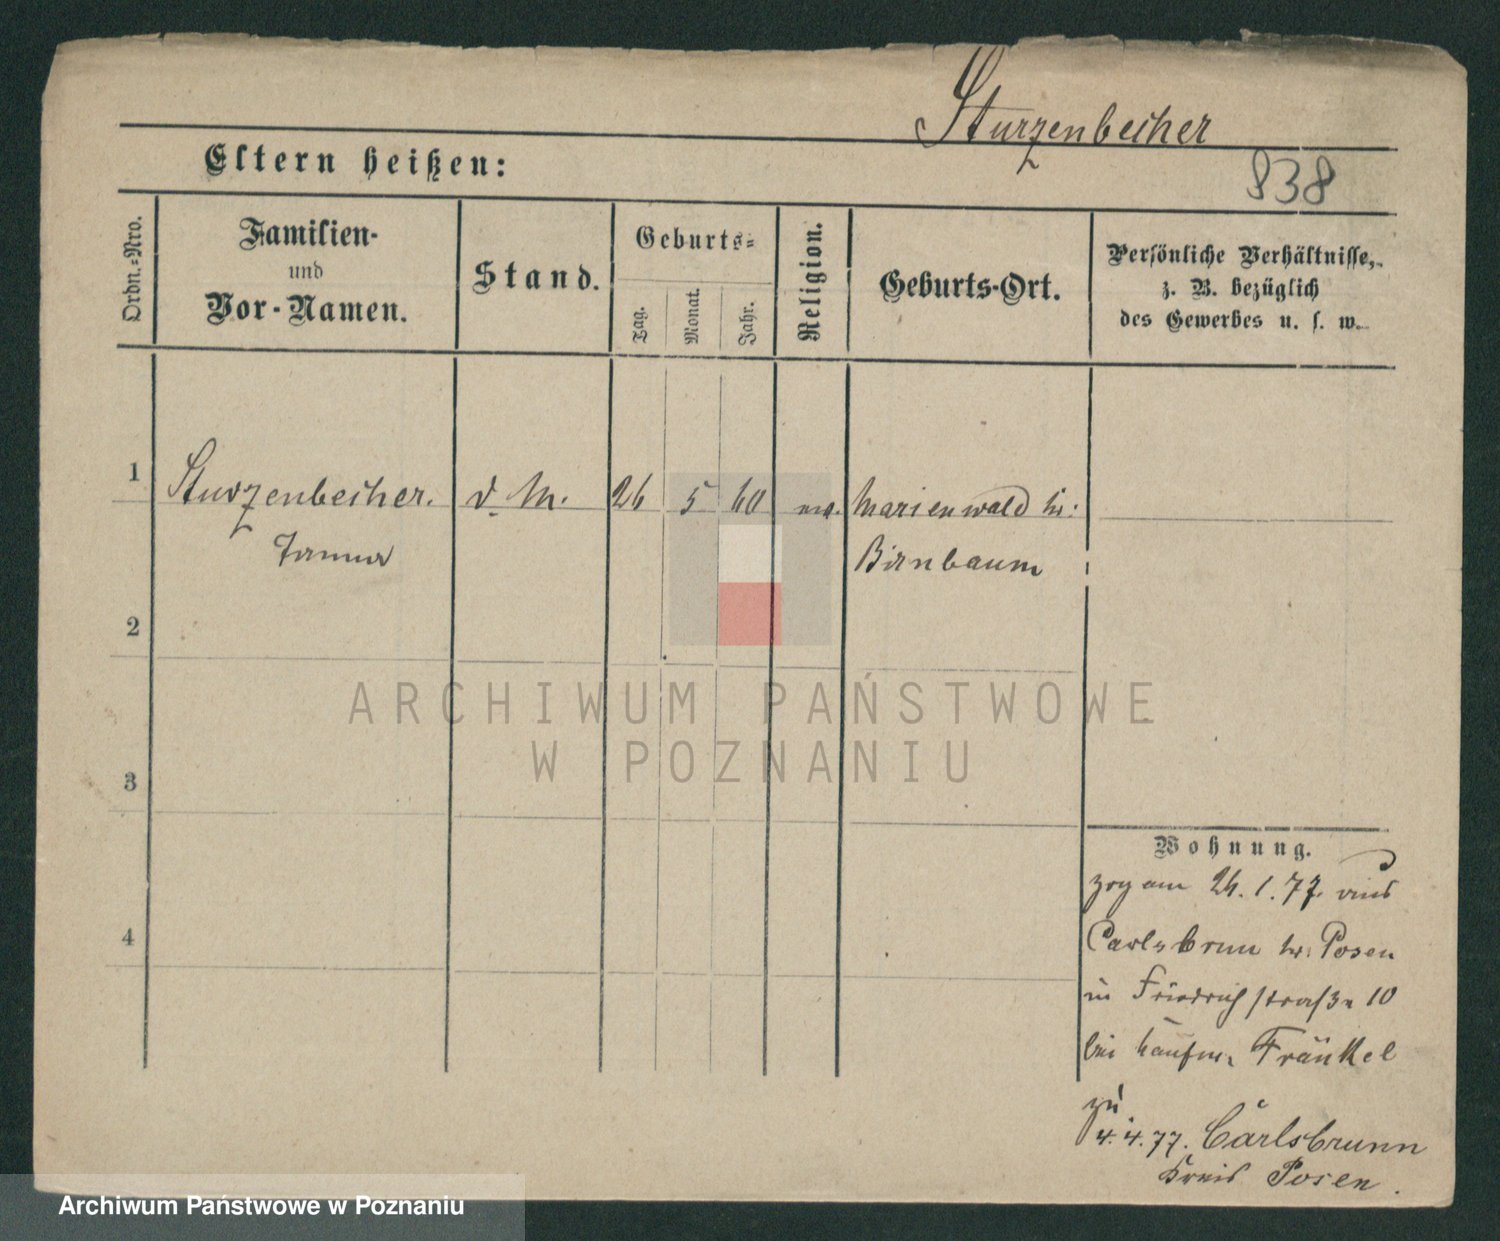 Sturzenbecher
Eltern heißen:
838
Ordn.-Nro.
Familien-
und
Vor-Namen.
Stand.
Geburts-
Tag.
Monat.
Jahr.
Religion.
Geburts-Ort.
Persönliche Verhältnisse,
z. B. bezüglich
des Gewerbes u. s. w.
1
Sturzenbecher. d. M. 26 5 60 Marienwald
Birnbaum
2
3
4
Wohnung.
zog am 1. 77. aus
Carlsbrun Posen
in Friedrichstraße 10
bei Kaufm. Fränkel
4. 4. 77. Carlsbrunn
Kreis Posen.
ARCHIWUM PAŃSTWOWE
W POZNANIU
Archiwum Państwowe w Poznaniu